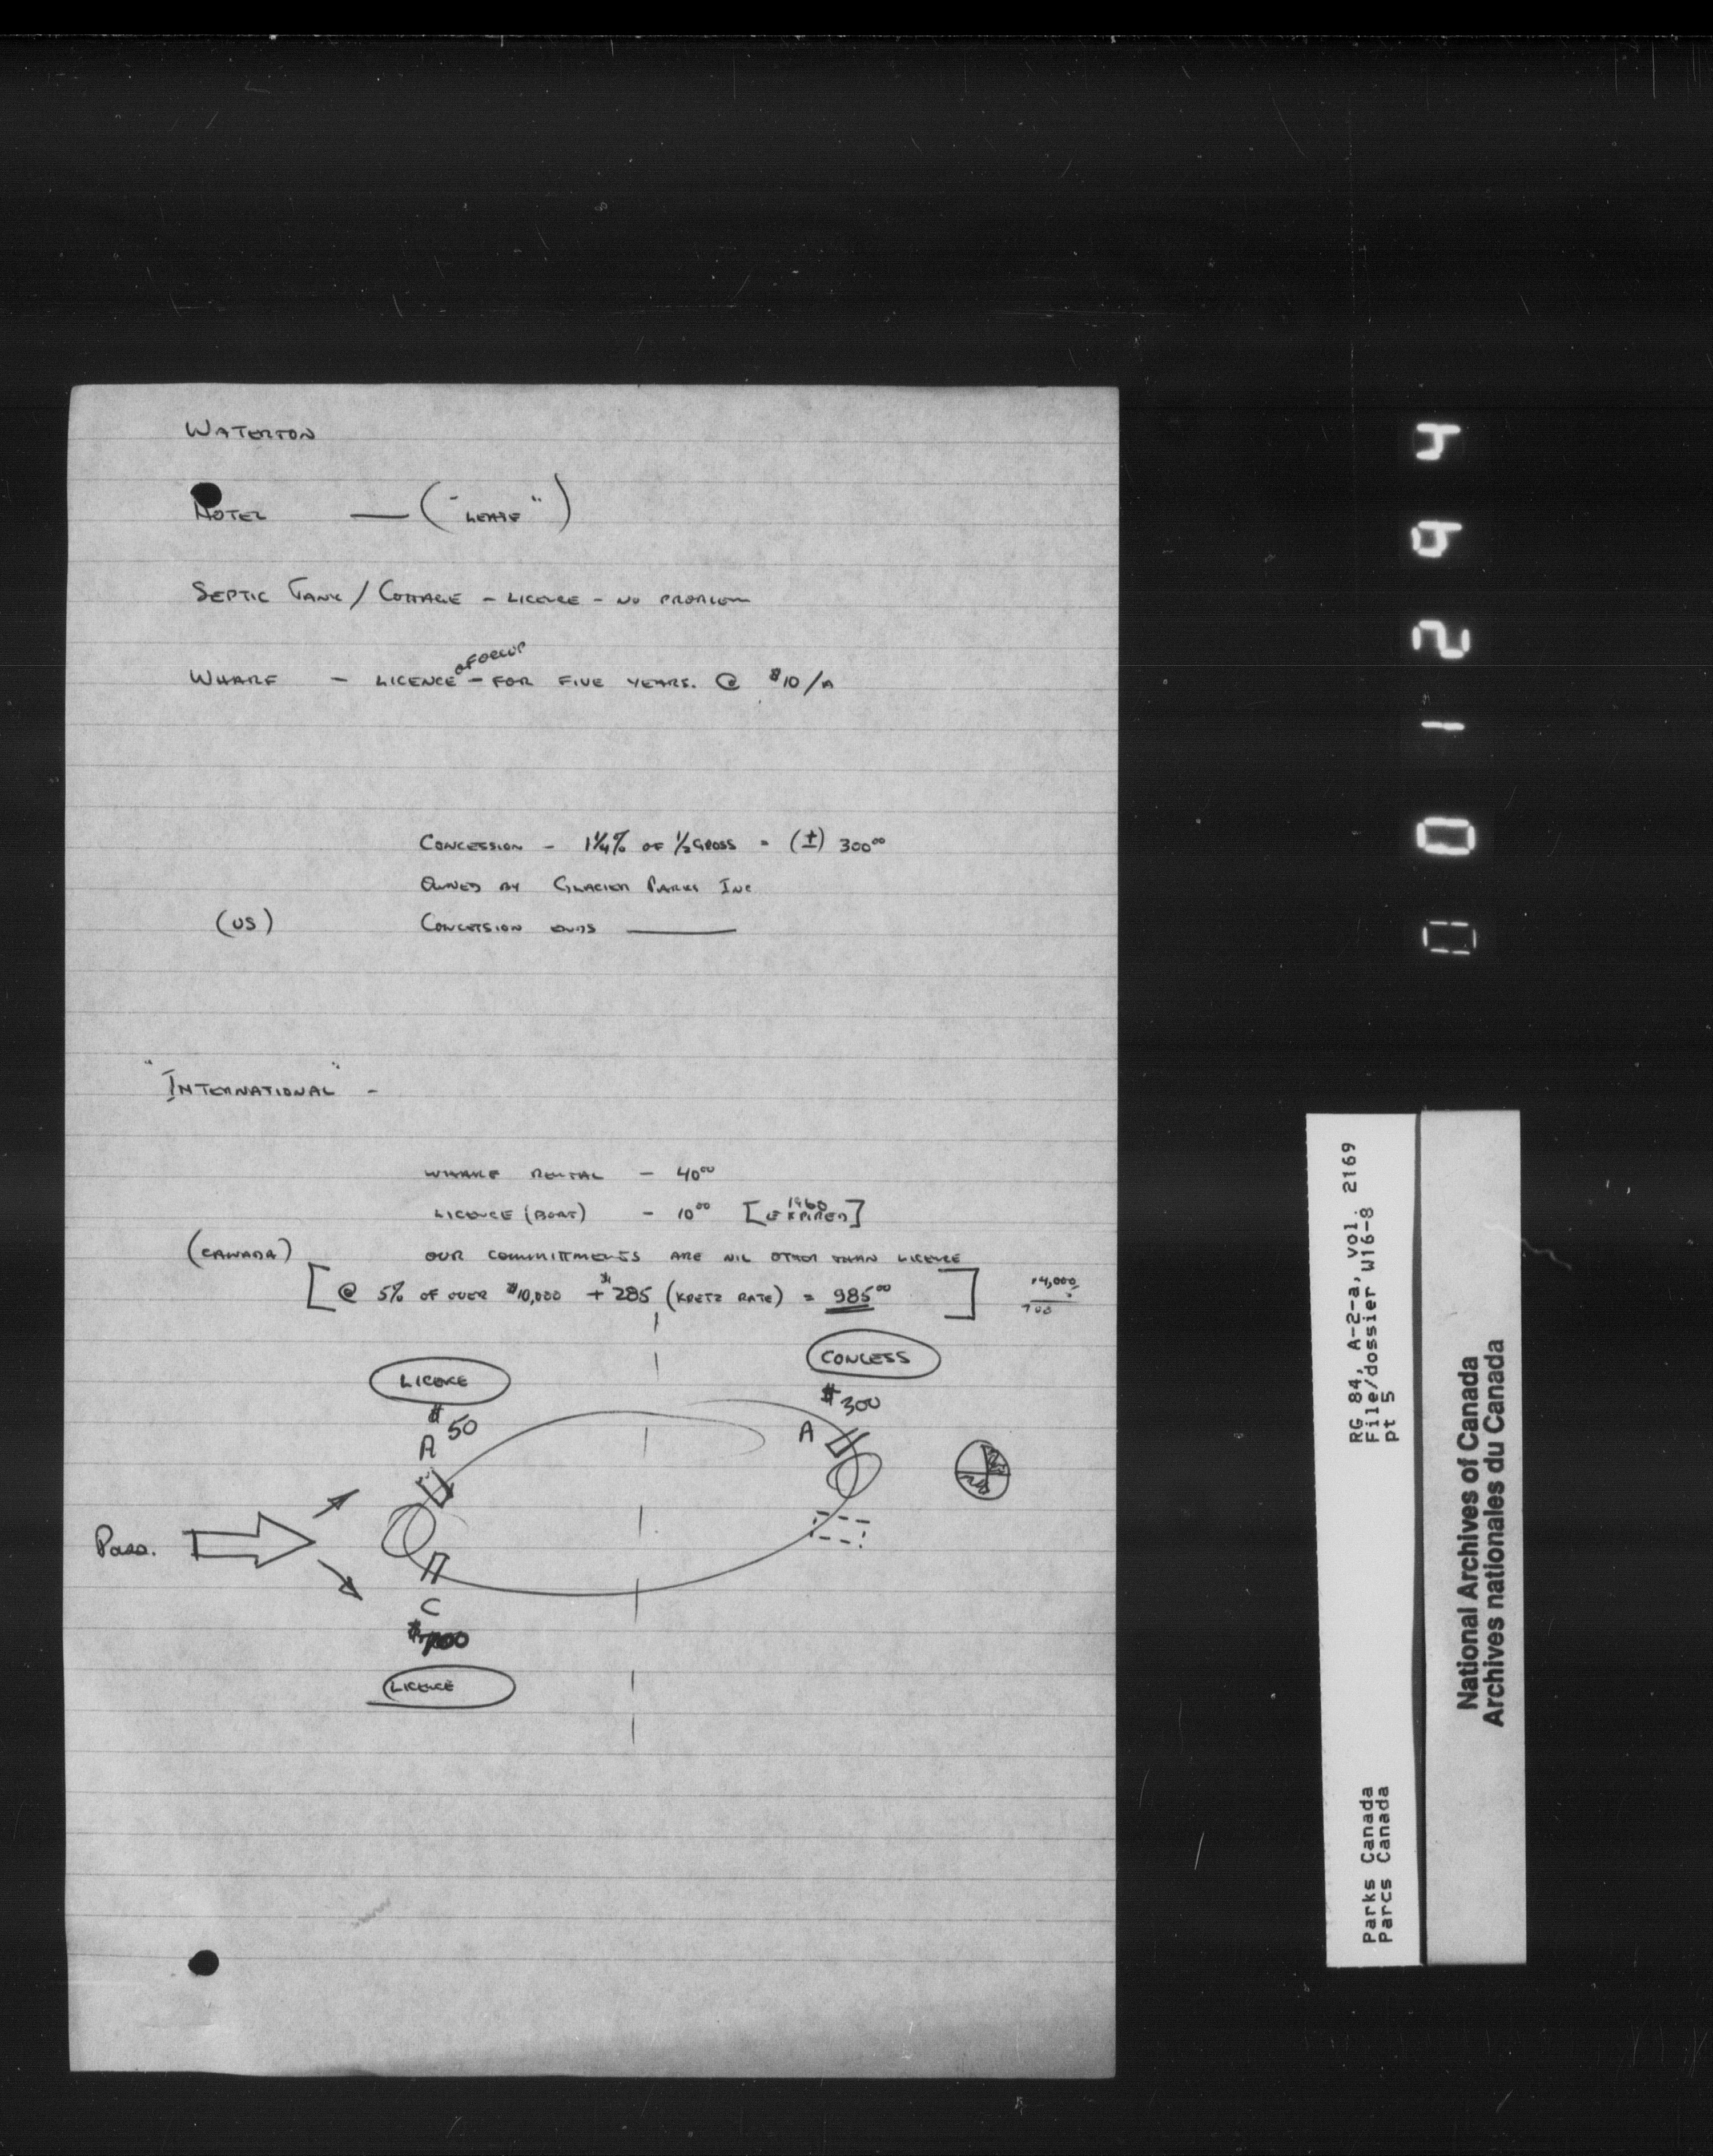 WATERTON
HOTEL — ("LEASE")
SEPTIC TANK / COTTAGE - LICENCE - NO PROBLEM
OF OCCUP
WHARF - LICENCE - FOR FIVE YEARS. @ $10/A
CONCESSION - 1¼% OF ½ GROSS = (±) 300⁰⁰
OWNED BY GLACIER PARKS INC
(US) CONCESSION ENDS ______
"INTERNATIONAL" -
WHARF RENTAL - 40⁰⁰
LICENCE (BOAT) - 10⁰⁰ [1960 EXPIRED]
(CANADA) OUR COMMITTMENTS ARE NIL OTHER THAN LICENCE
[@ 5% OF OVER $10,000 + $285 (KRETZ RATE) = 985⁰⁰] 14,000
700
CONCESS
LICENCE
$300
$50
A
A
Pass.
C
LICENCE
012964
RG 84, A-2-a, vol. 2169
File/dossier W16-8
pt 5
Parks Canada
Parcs Canada
National Archives of Canada
Archives nationales du Canada